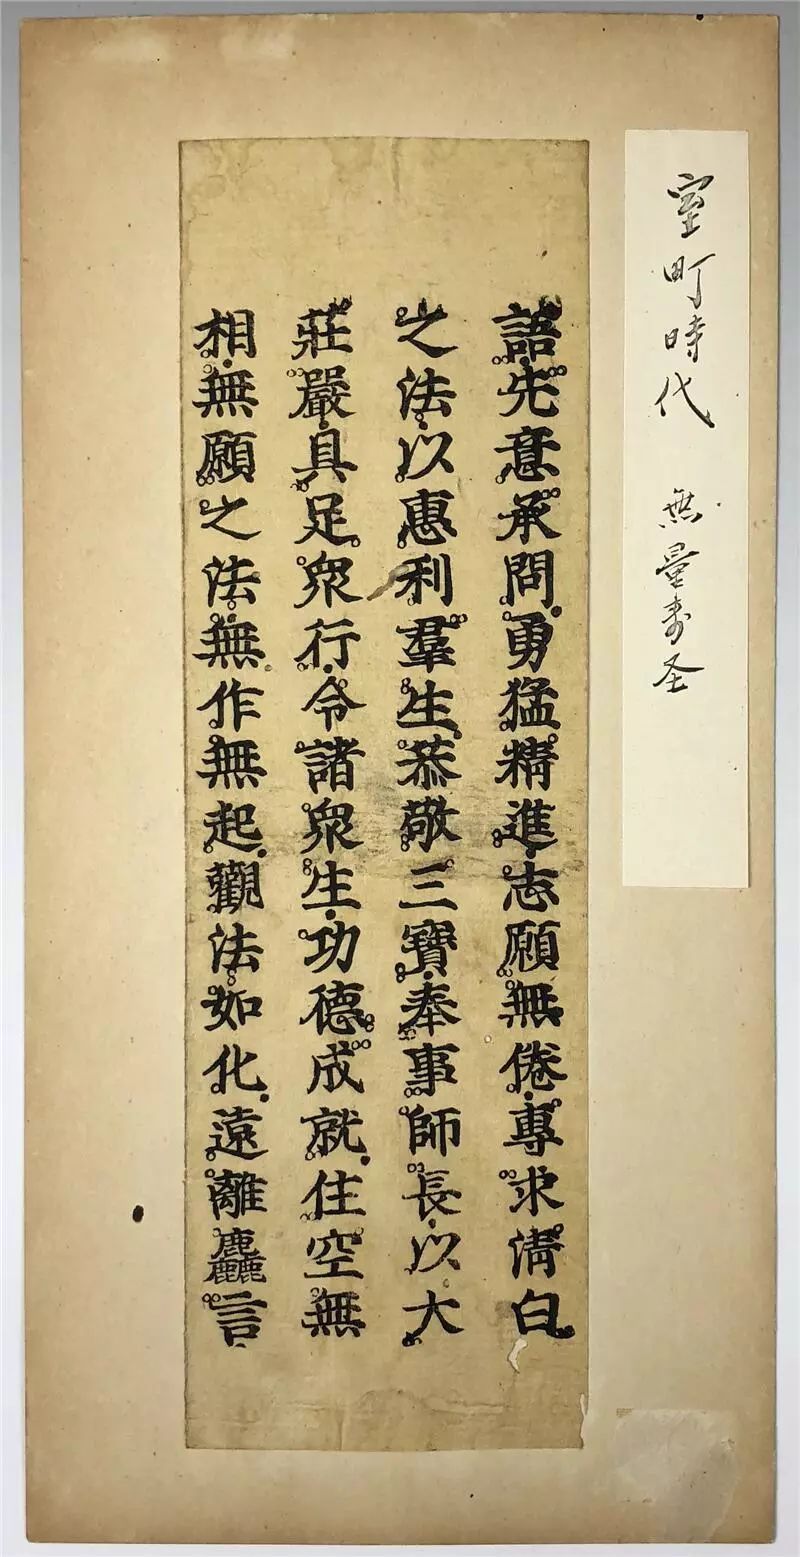 室町時代 無量寿圣
語先意承問勇猛精進志願無倦專求清白
之法以惠利羣生恭敬三寶奉事師長以大
莊嚴具足衆行令諸衆生功德成就住空無
相無願之法無作無起觀法如化遠離麤言